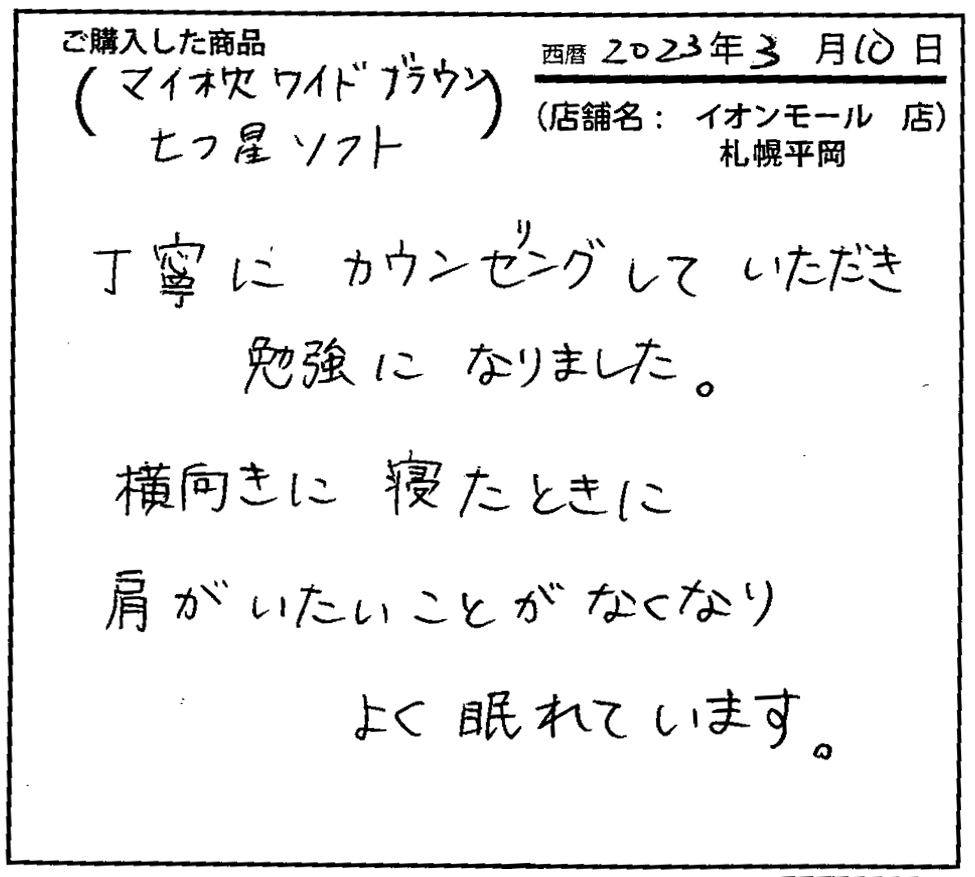 ご購入した商品
西暦 2023年3月10日
(マイ枕 ワイド ブラウン
七つ星 ソフト)
(店舗名: イオンモール 店)
札幌平岡
丁寧に カウンゼリング して いただき
勉強に なりました。
横向きに 寝たときに
肩が いたい ことが なくなり
よく 眠れて います。